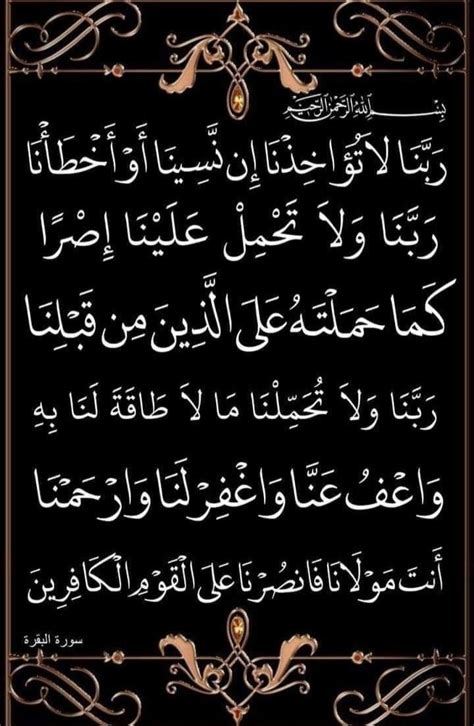 بِسْمِ اللهِ الرَّحْمٰنِ الرَّحِيْمِ
رَبَّنَا لاَ تُؤَاخِذْنَا إِن نَّسِينَا أَوْ أَخْطَأْنَا
رَبَّنَا وَلاَ تَحْمِلْ عَلَيْنَا إِصْرًا
كَمَا حَمَلْتَهُ عَلَى الَّذِينَ مِن قَبْلِنَا
رَبَّنَا وَلاَ تُحَمِّلْنَا مَا لاَ طَاقَةَ لَنَا بِهِ
وَاعْفُ عَنَّا وَاغْفِرْ لَنَا وَارْحَمْنَا
أَنتَ مَوْلَانَا فَانصُرْنَا عَلَى الْقَوْمِ الْكَافِرِينَ
سورة البقرة